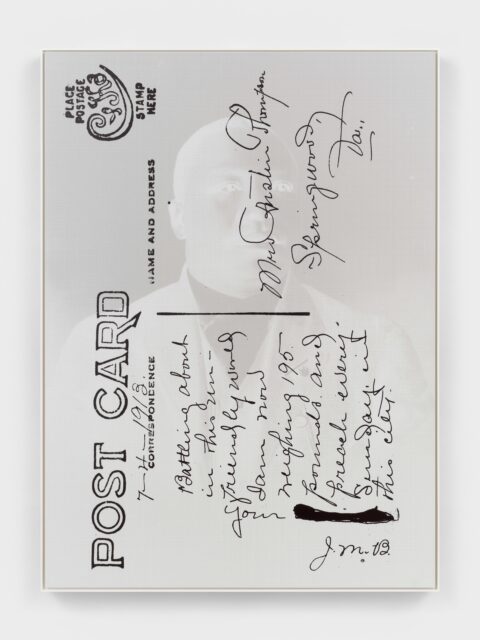 POST CARD
PLACE
POSTAGE
STAMP
HERE
7-4-1913.
CORRESPONDENCE
NAME AND ADDRESS
Battling about
in this un-
friendly world
I am now
weighing 195
pounds and
preach every
Sunday in
this city.
Your
J. M. B.
Mrs Austin Thompson
Springwood,
Va.,